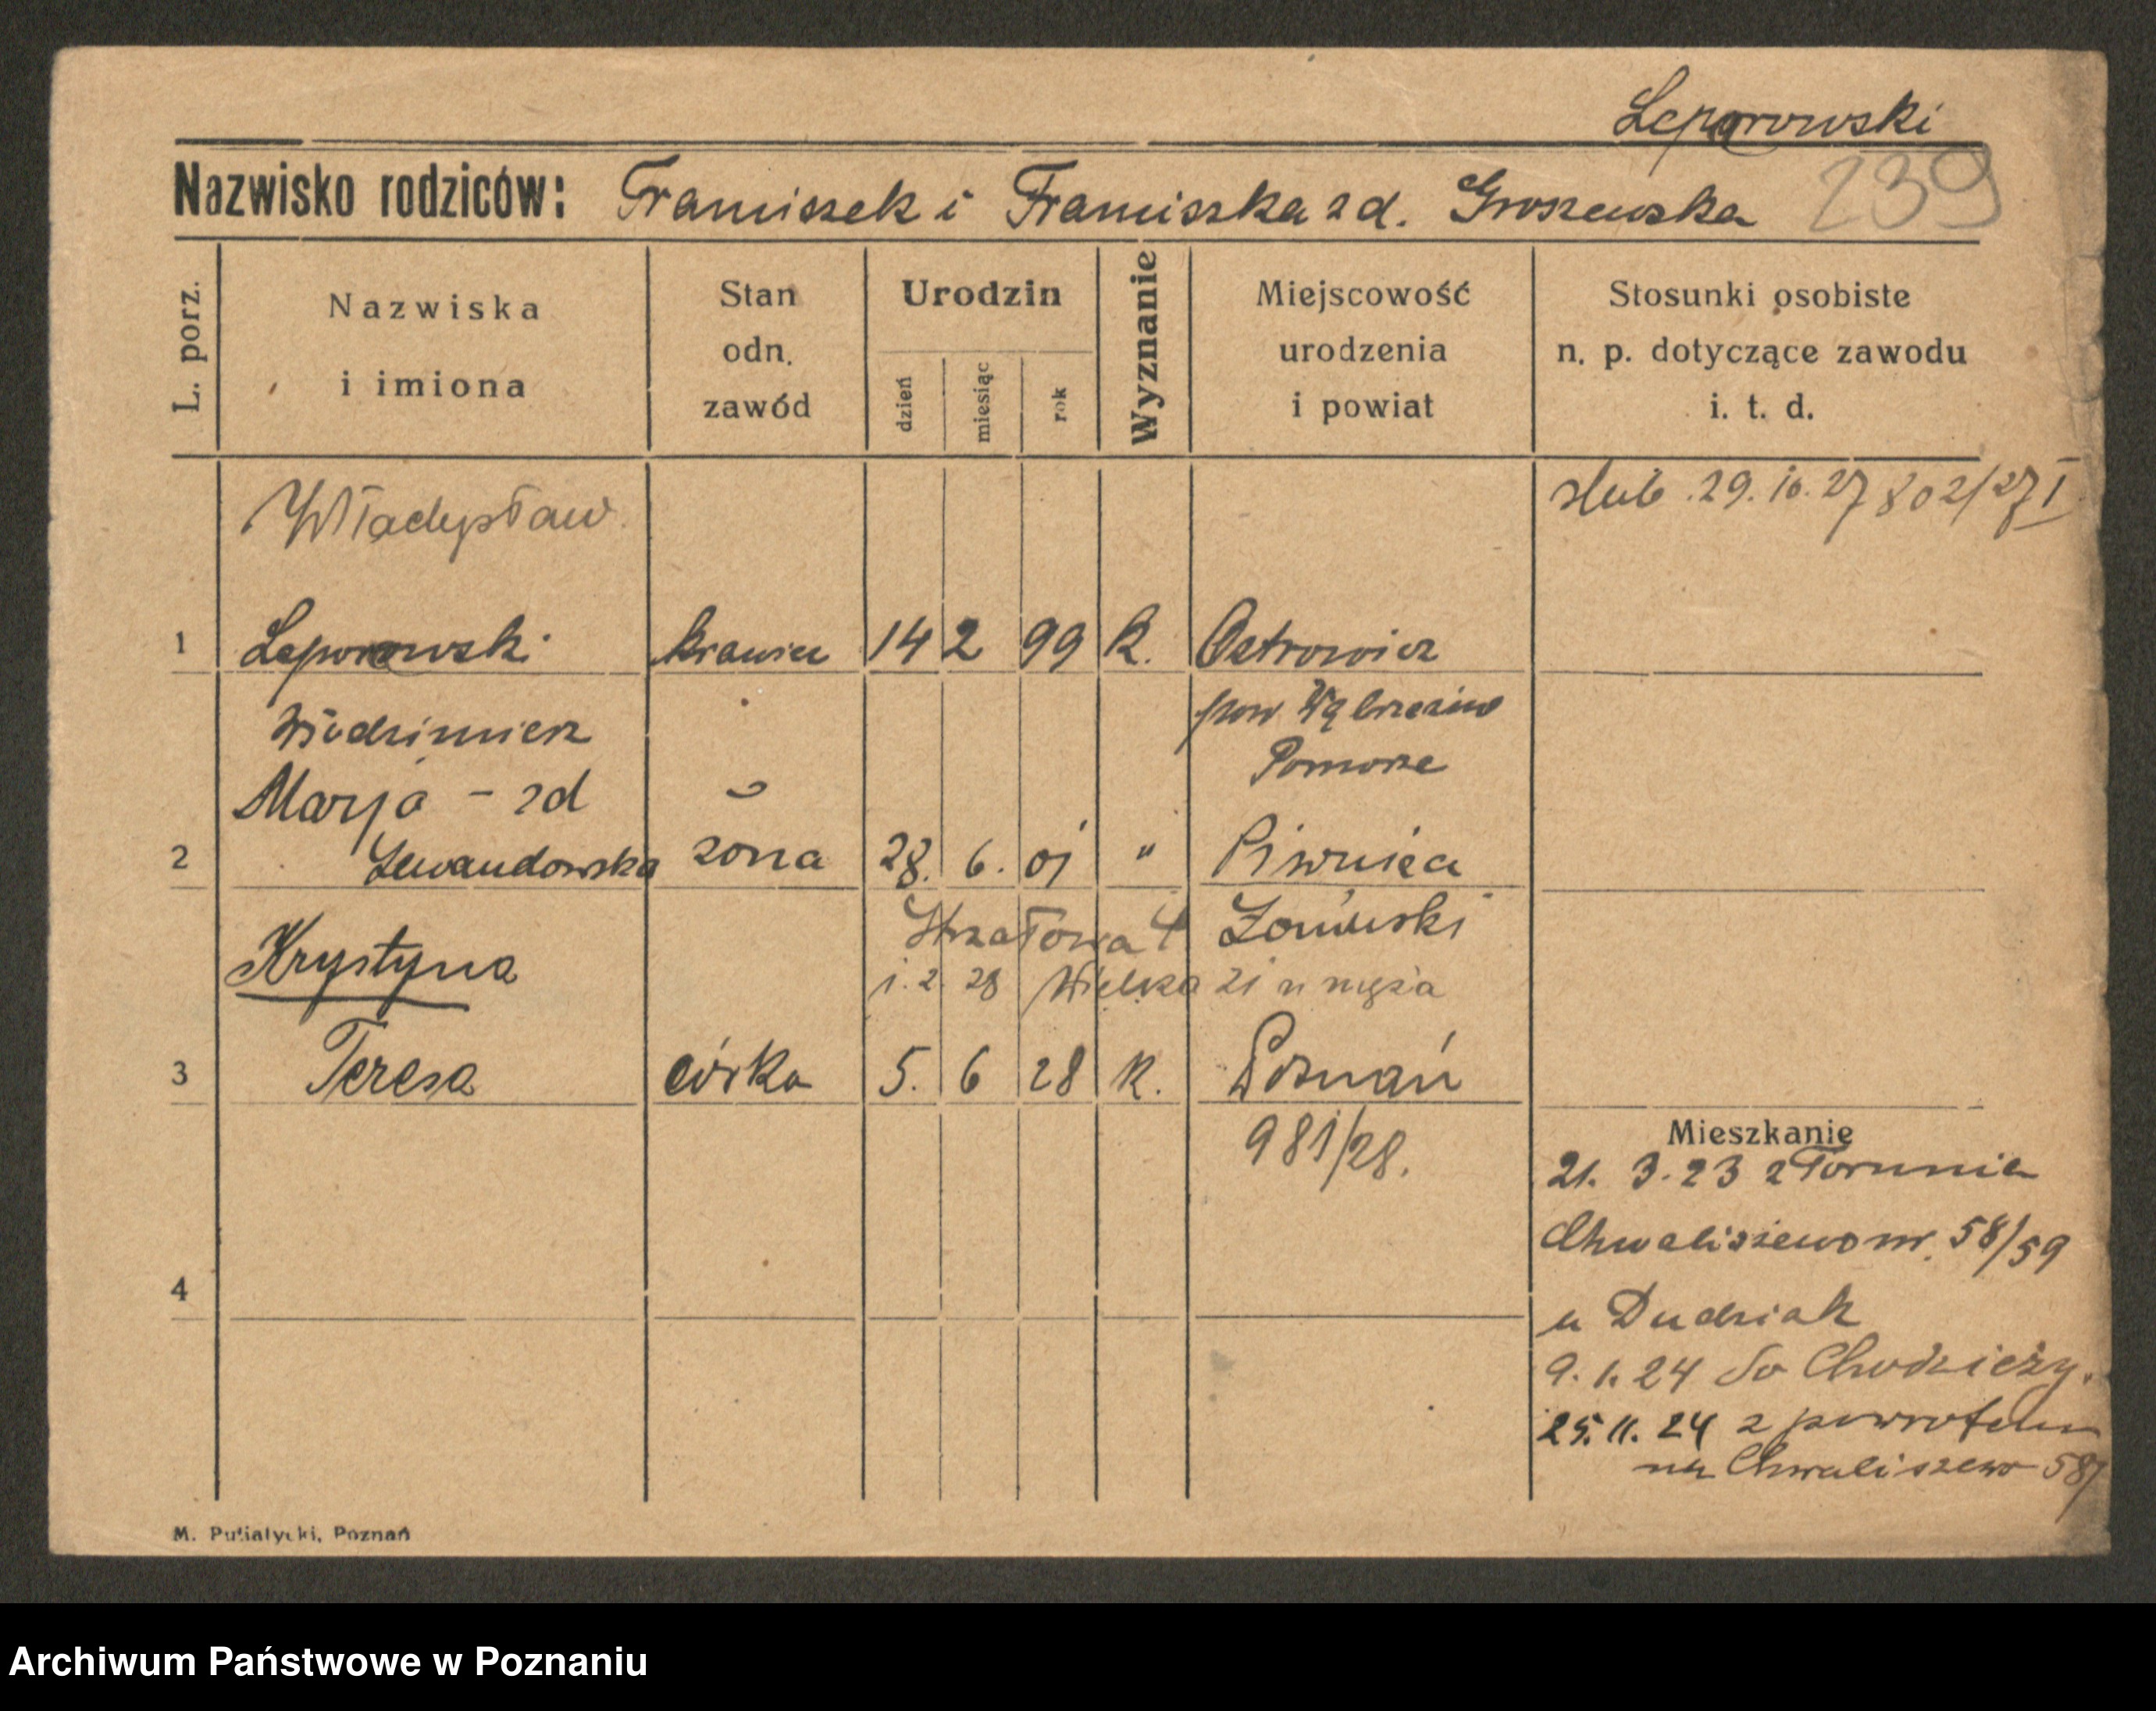 Leporowski
Nazwisko rodziców: Franciszek i Franciszka zd. Groszewska 239
L. porz.
Nazwiska i imiona
Stan odn. zawód
Urodzin
dzień
miesiąc
rok
Wyznanie
Miejscowość urodzenia i powiat
Stosunki osobiste n. p. dotyczące zawodu i. t. d.
Władysław
ślub . 29. 10. 27 802/27 I
1 Leporowski krawiec 14 2 99 k. Ostrowicz
Włodzimierz
pow Wąbrzeźno
Pomorze
Marja - zd
2 Lewandowska żona 28. 6. 01 " Piwnica
Strzałowa 4
Krystyna
1. 2. 28 Wielka 21 u męża
3 Teresa córka 5. 6 28 k. Poznań
981/28.
Mieszkanie
21. 3. 23 z Torunia
Chwaliszewo nr. 58/59
4
u Dudziak
9. 1. 24 do Chodzieży.
25. 11. 24 z powrotem
na Chwaliszewo 58/
M. Putiatycki, Poznań
Archiwum Państwowe w Poznaniu